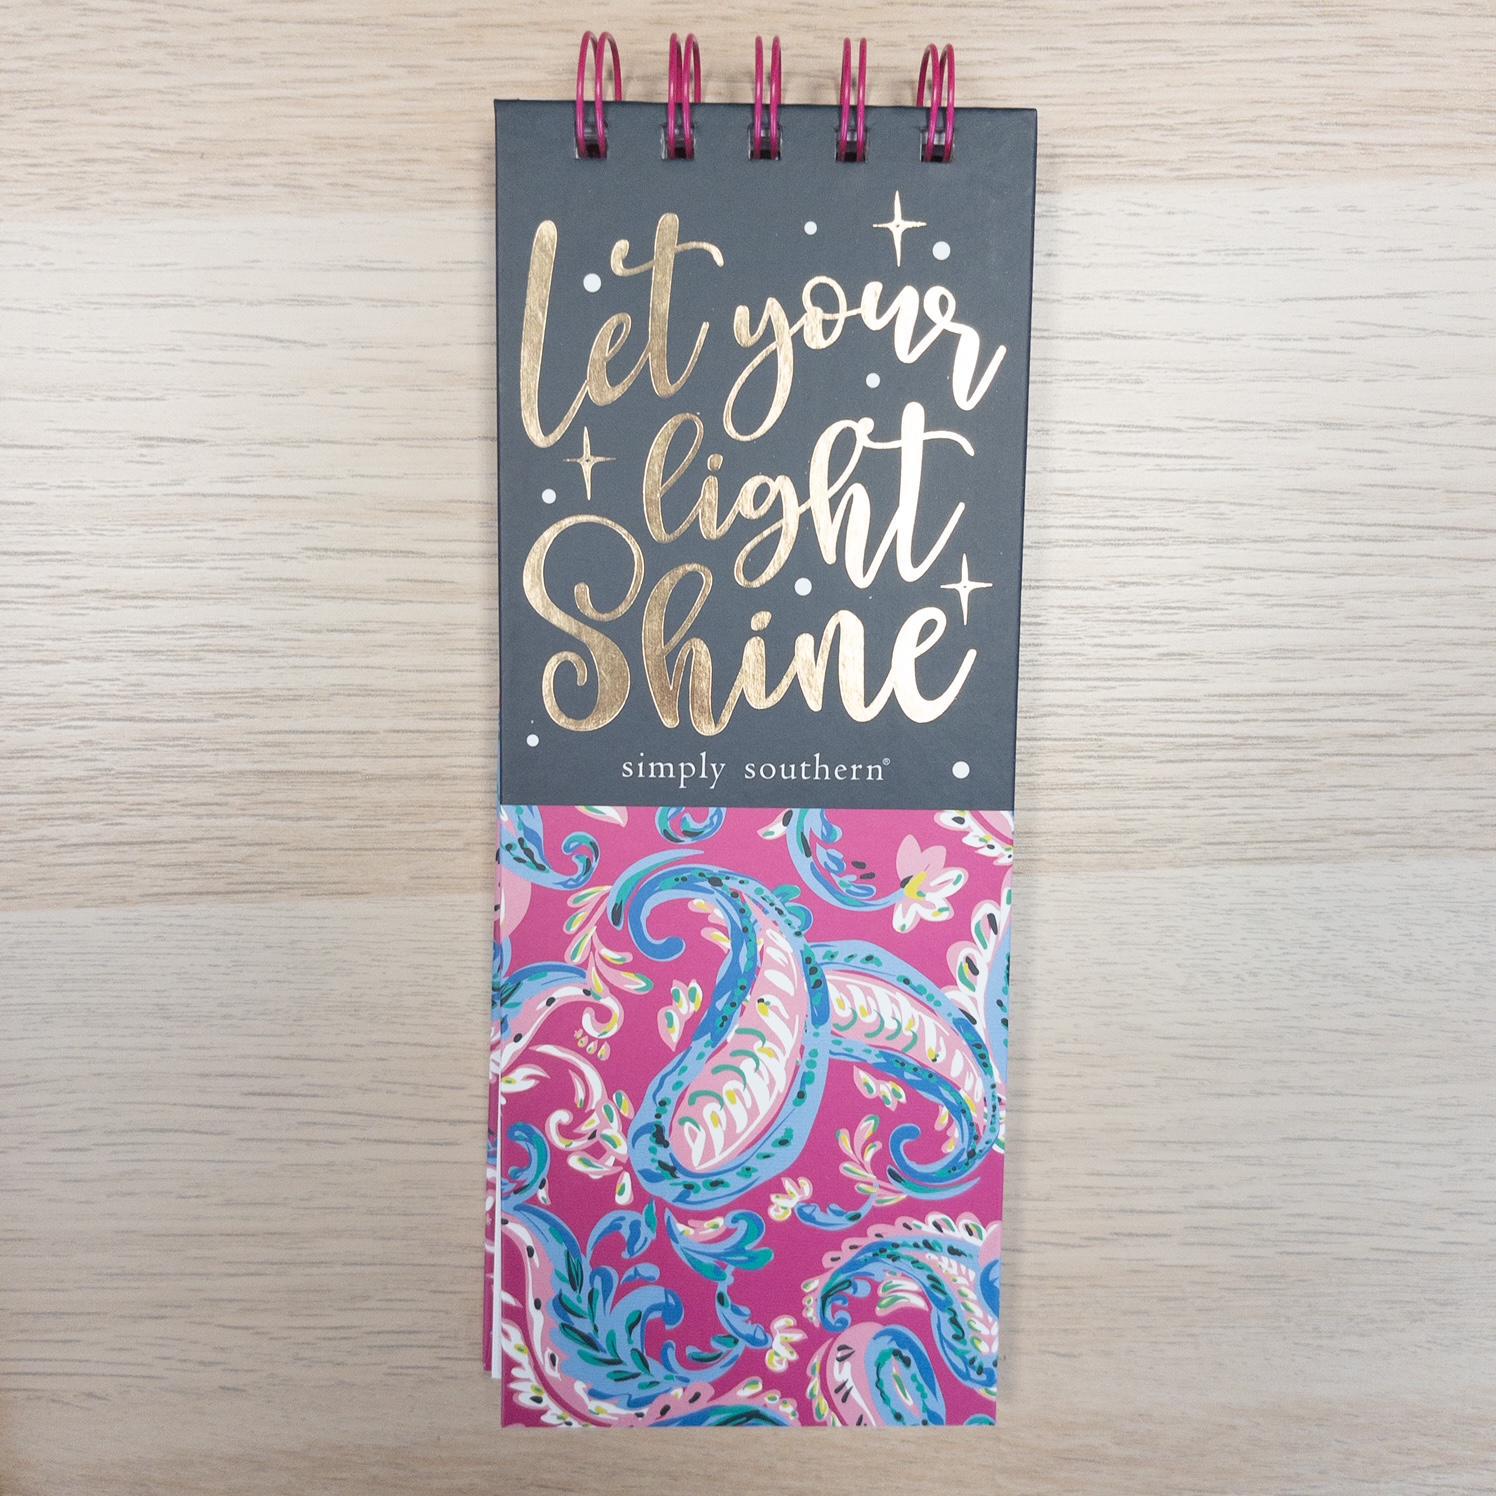 Let your
light
Shine
simply southern®